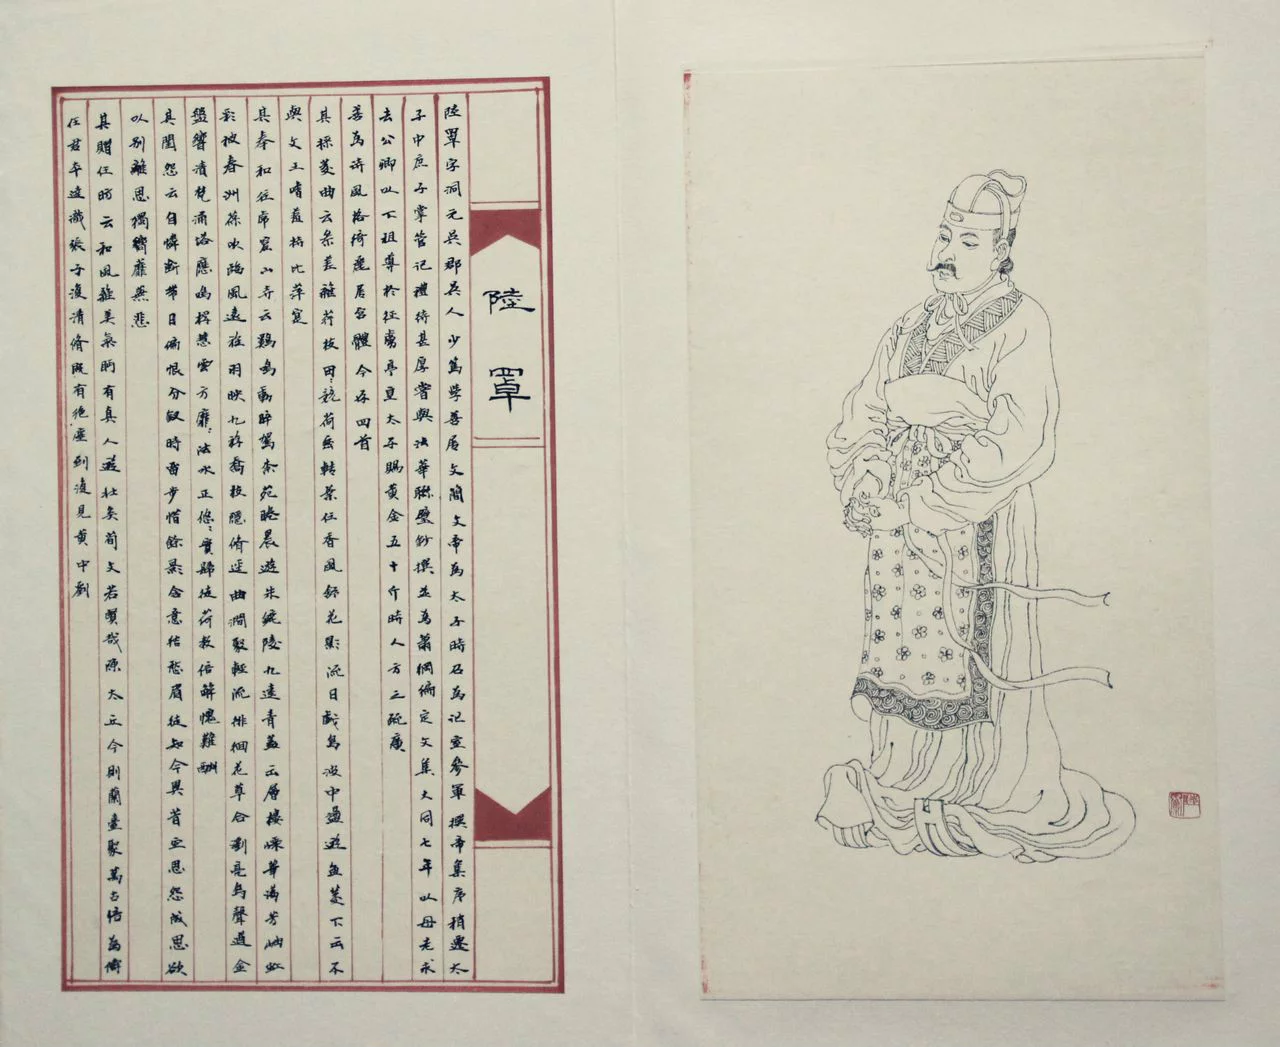 陸罩
陸罩字洞元吳郡吳人少篤學善屬文簡文帝為太子時召為記室參軍撰帝集序稍遷太
子中庶子掌管記禮待甚厚嘗與法華聯璧鈔撰並為蕭綱編定文集大同七年以母老求
去公卿以下祖尊於征虜亭皇太子賜黃金五十斤時人方之疏廣
善為詩風格綺麗居宮體今存四首
其採菱曲云參差雜荇枝田ミ競荷密轉葉任香風舒花影流日戲鳥波中蕩遊魚菱下云不
與文王嗜羞持比萍實
其奉和往虎窟山寺云鷄鳴動睟駕柰苑睠晨遊朱鑣陵九逵青蓋出層樓嶸華滿芳岫虹
彩被春洲葆吹臨風遠旌羽映九斿喬枝隱修逕曲澗聚輕流排徊花草合瀏亮鳥聲遒金
盤響清梵涌塔應鳴桴慧雲方靡ミ法水正悠ミ實歸徒荷教信解愧難酬
其閨怨云自憐斷帶日偏恨分釵時留步惜餘影含意結愁眉徒知今異昔空思怨成思欲
以別離思獨響靡無悲
其贈任昉云和風雜美氣眄有真人遊壯矣荀文若賢哉陳太丘今則蘭臺聚萬古信為儔
任君本達識張子復清修既有絕塵到復見黃中劉